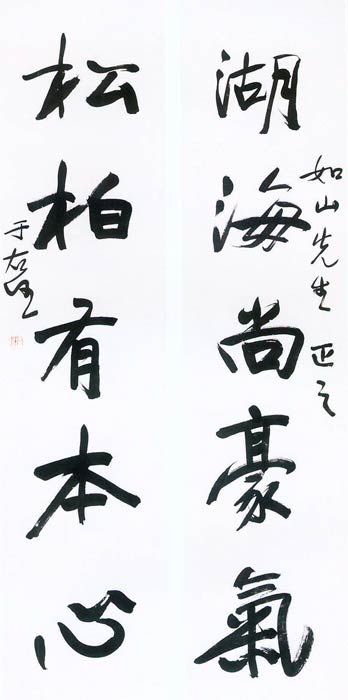 湖海尚豪氣
如山先生 正之
松柏有本心
于右任